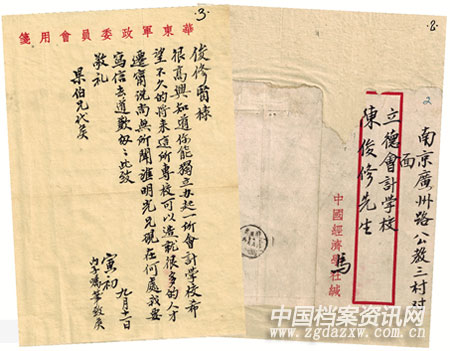 .3.
華東軍政委員會用箋
俊修賢棣
很高興知道你能獨立办起一所會計學校希
望不久的將來這所專校可以造就很多的人才
遷甯說尚無所聞滙明光兄現在何處我要
寫信去道歉匆々此致
敬礼
寅初
九月
8
2
南京廣州路公教三村对
面
立德會計學校
陳俊修先生
中國經濟學社緘
馬
中国档案资讯网
www.zgdazxw.com.cn